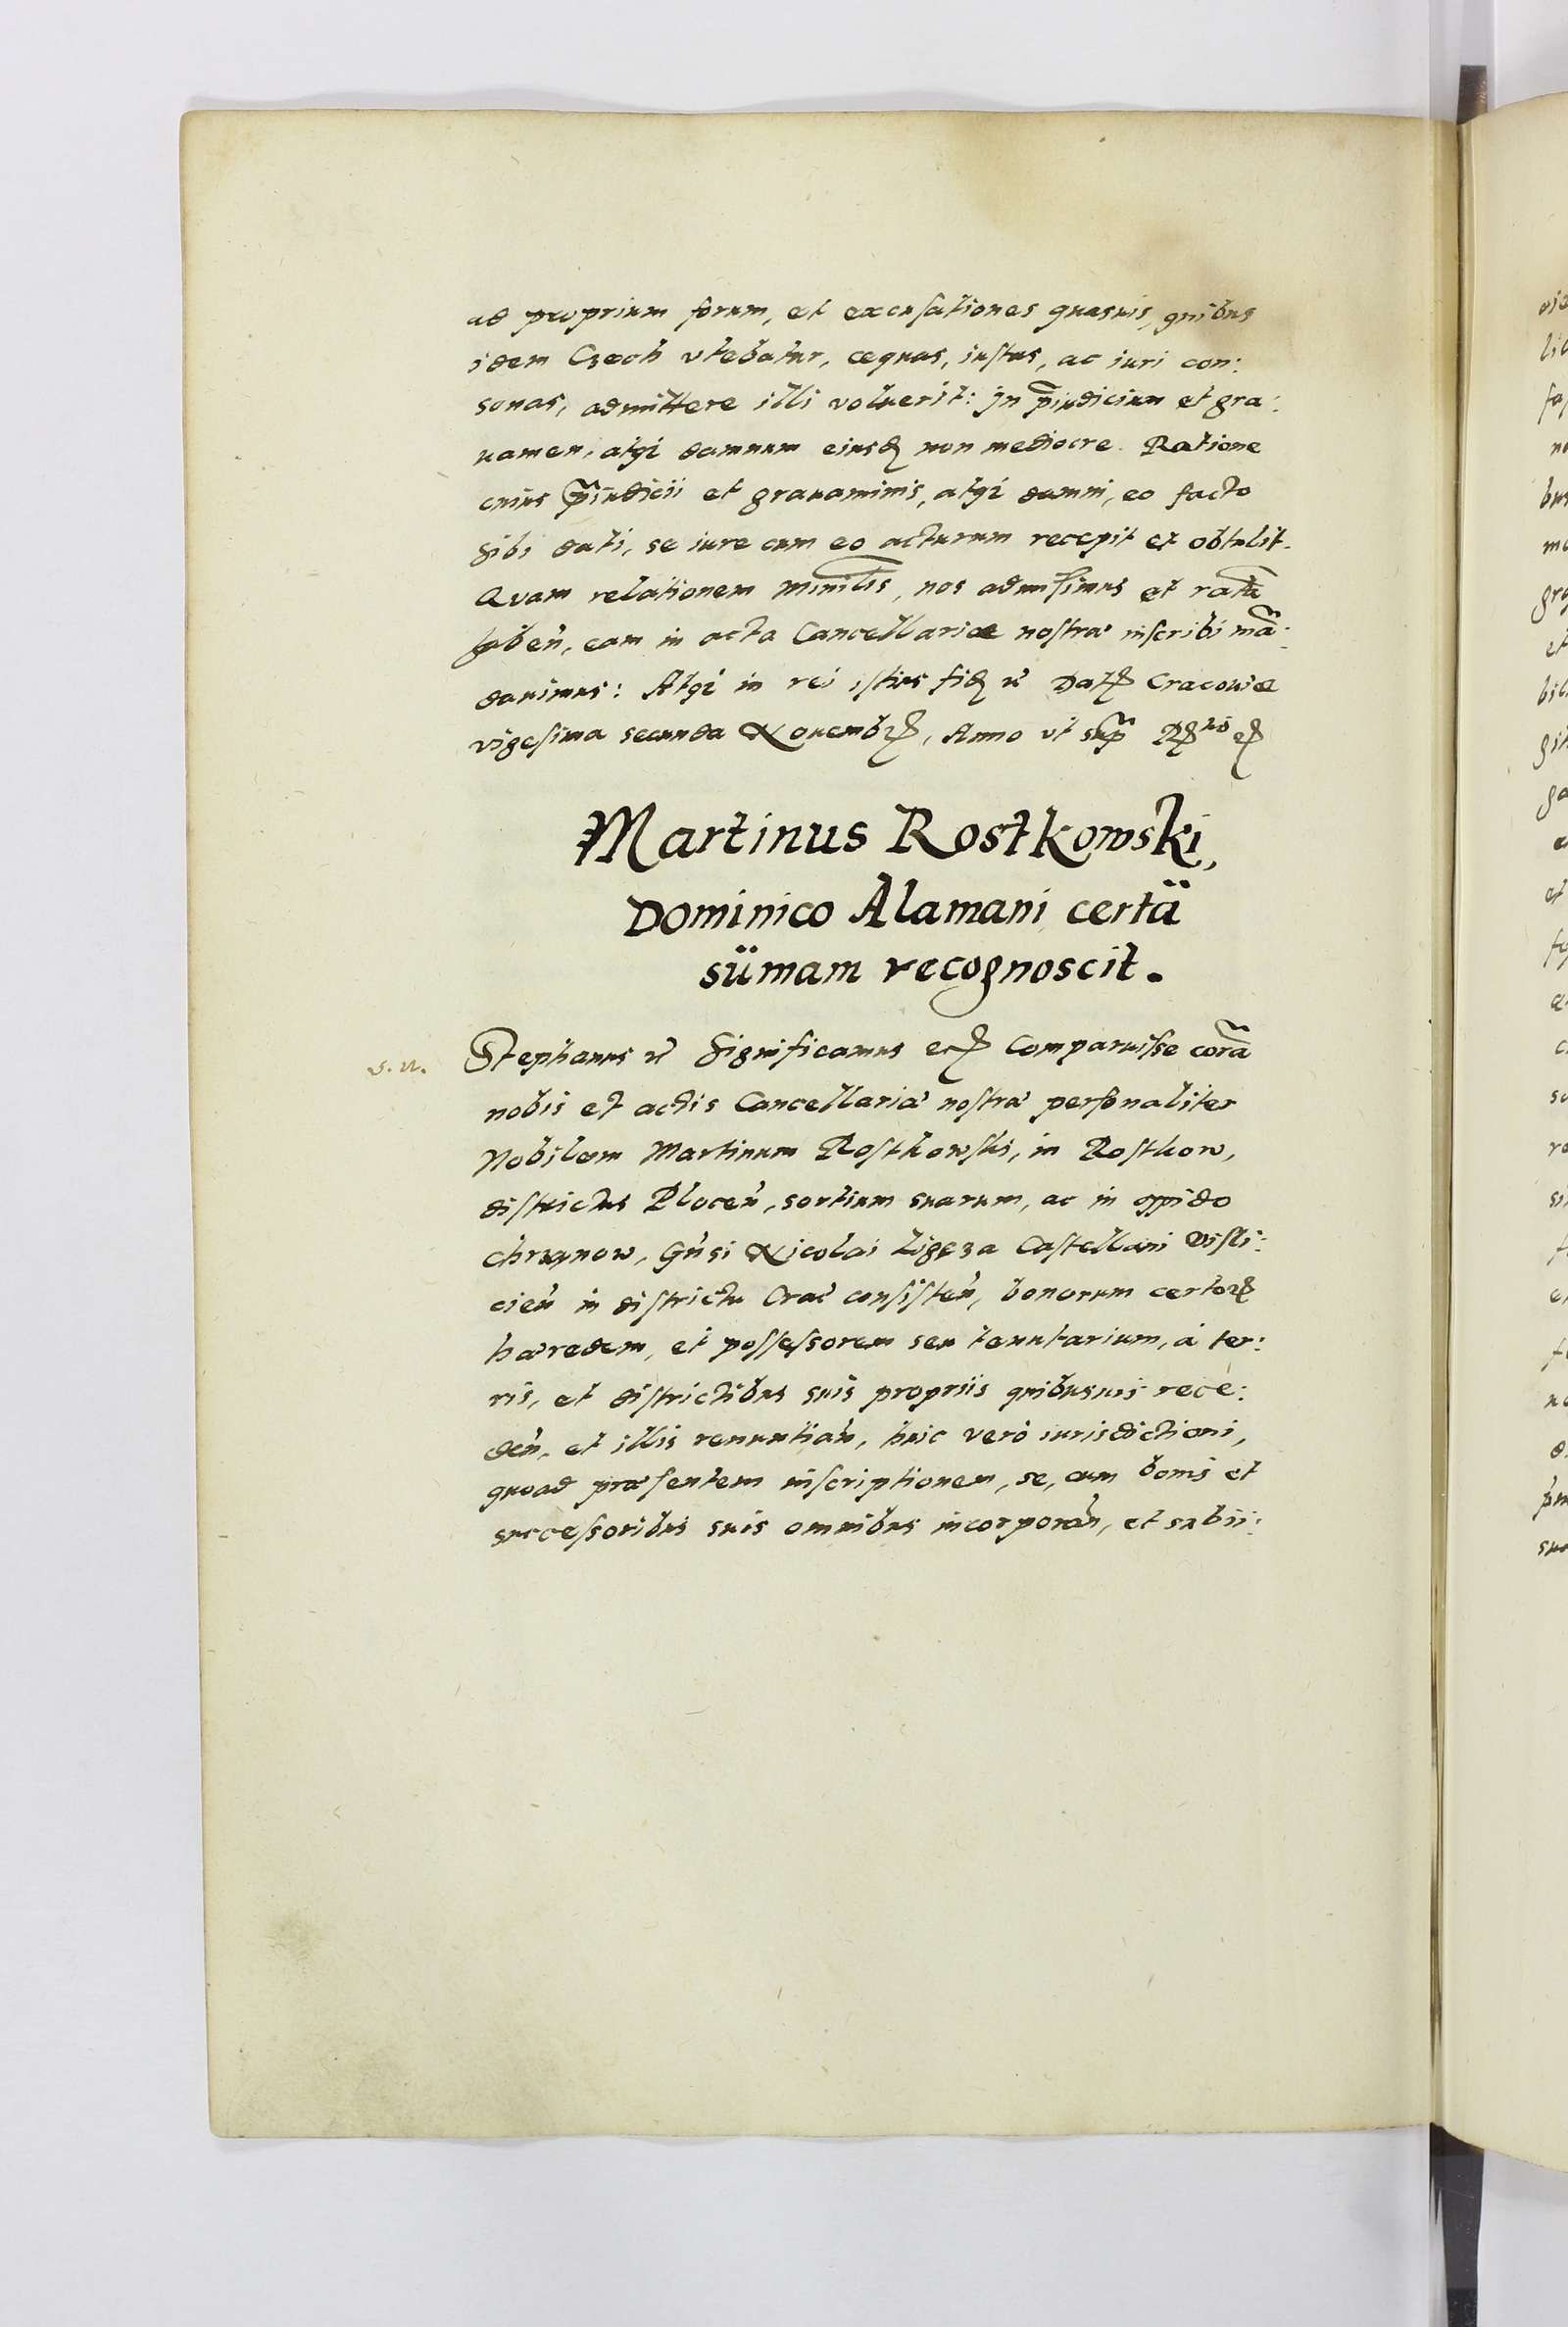 ad proprium forum, et excusationes quasuis, quibus
idem Czech vtebatur, æquas, iustas, ac iuri con:
sonas, admittere illi voluerit: In p̃iudicium et gra:
uamen, atq́ʒ damnum eiusdꝫ non mediocre. Ratione
cuius p̃iudicii et grauaminis, atq́ʒ damni, eo facto
sibi dati, se iure cum eo acturum recepit et obtulit.
Quam relationem Minil̃is, nos admisimus et ratã
haben̄, eam in acta Cancellariæ nostræ inscribi mã:
dauimus: Atq́ʒ in rei istius fidꝫ &c Datꝫ Cracouiæ
vigesima secunda Nouembrꝭ, Anno vt sup̃ Rꝭ nri &c
Martinus Rostkowski,
Dominico Alamani certã
sũmam recognoscit.
S. N. Stephanus &c Significamus &c Comparuisse corã
nobis et actis Cancellariæ nostræ personaliter
Nobilem Martinum Rostkowski, in Rostkow,
districtus Plocen̄, sortium suarum, ac in oppido
Chrzanow, Gn̄si Nicolai Ligęza Castellani Visli:
cien̄ in districtu Crac̄ consisten̄, bonorum certorꝫ
hæredem, et possessorem seu tenutarium, à ter:
ris, et districtibus suis propriis quibusuis rece:
den̄, et illis renuntian̄, huic verò iurisdictioni,
quoad præsentem inscriptionem, se, cum bonis et
successoribus suis omnibus incorporan̄, et subii: